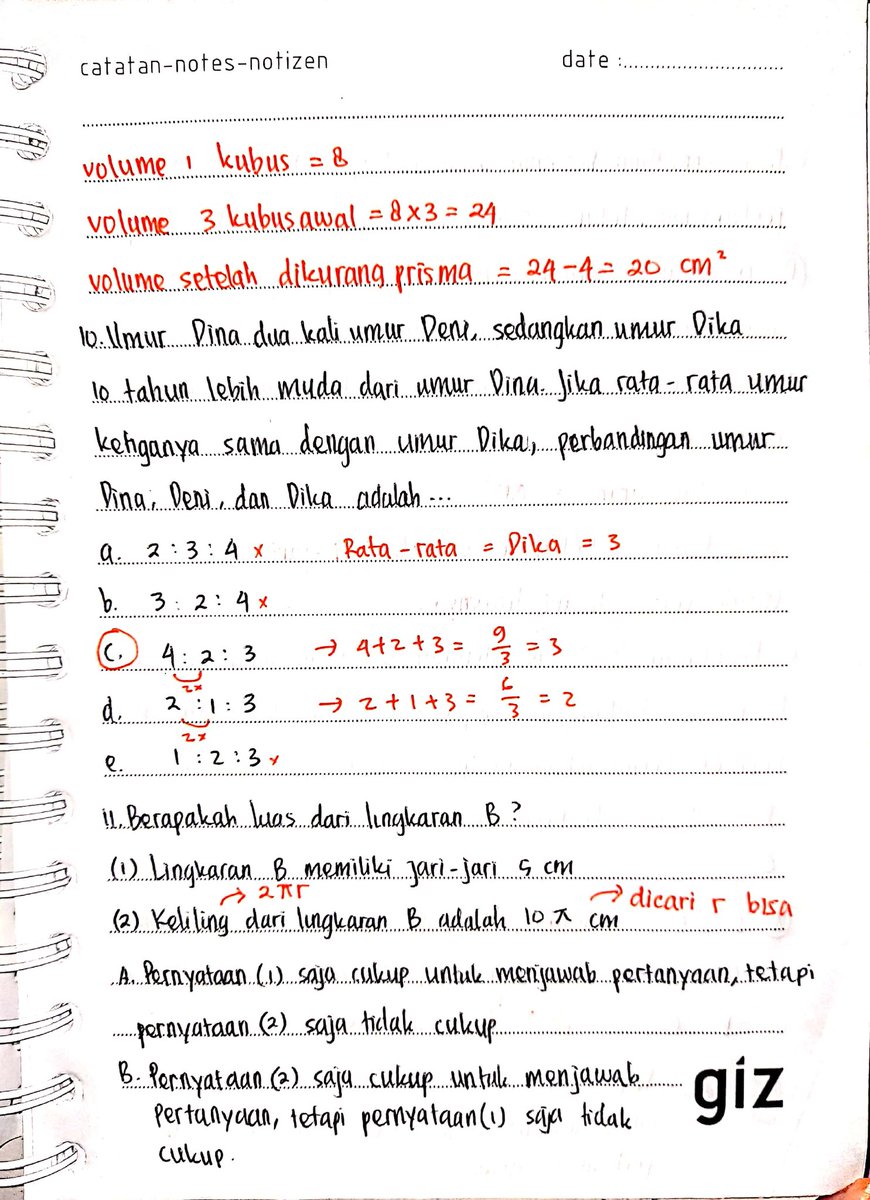 catatan-notes-notizen date :..............................
volume 1 kubus = 8
volume 3 kubus awal = 8 x 3 = 24
volume setelah dikurang prisma = 24 - 4 = 20 cm²
10. Umur Dina dua kali umur Deni, sedangkan umur Dika
10 tahun lebih muda dari umur Dina. Jika rata-rata umur
ketiganya sama dengan umur Dika, perbandingan umur
Dina, Deni, dan Dika adalah...
a. 2 : 3 : 4 x Rata-rata = Dika = 3
b. 3 : 2 : 4 x
c. 4 : 2 : 3 → 4+2+3 = 9/3 = 3
2x
d. 2 : 1 : 3 → 2+1+3 = 6/3 = 2
2x
e. 1 : 2 : 3 x
11. Berapakah luas dari lingkaran B?
(1) Lingkaran B memiliki jari-jari 5 cm
→ 2πr → dicari r bisa
(2) Keliling dari lingkaran B adalah 10 π cm
A. Pernyataan (1) saja cukup untuk menjawab pertanyaan, tetapi
pernyataan (2) saja tidak cukup
B. Pernyataan (2) saja cukup untuk menjawab
pertanyaan, tetapi pernyataan (1) saja tidak
cukup.
giz